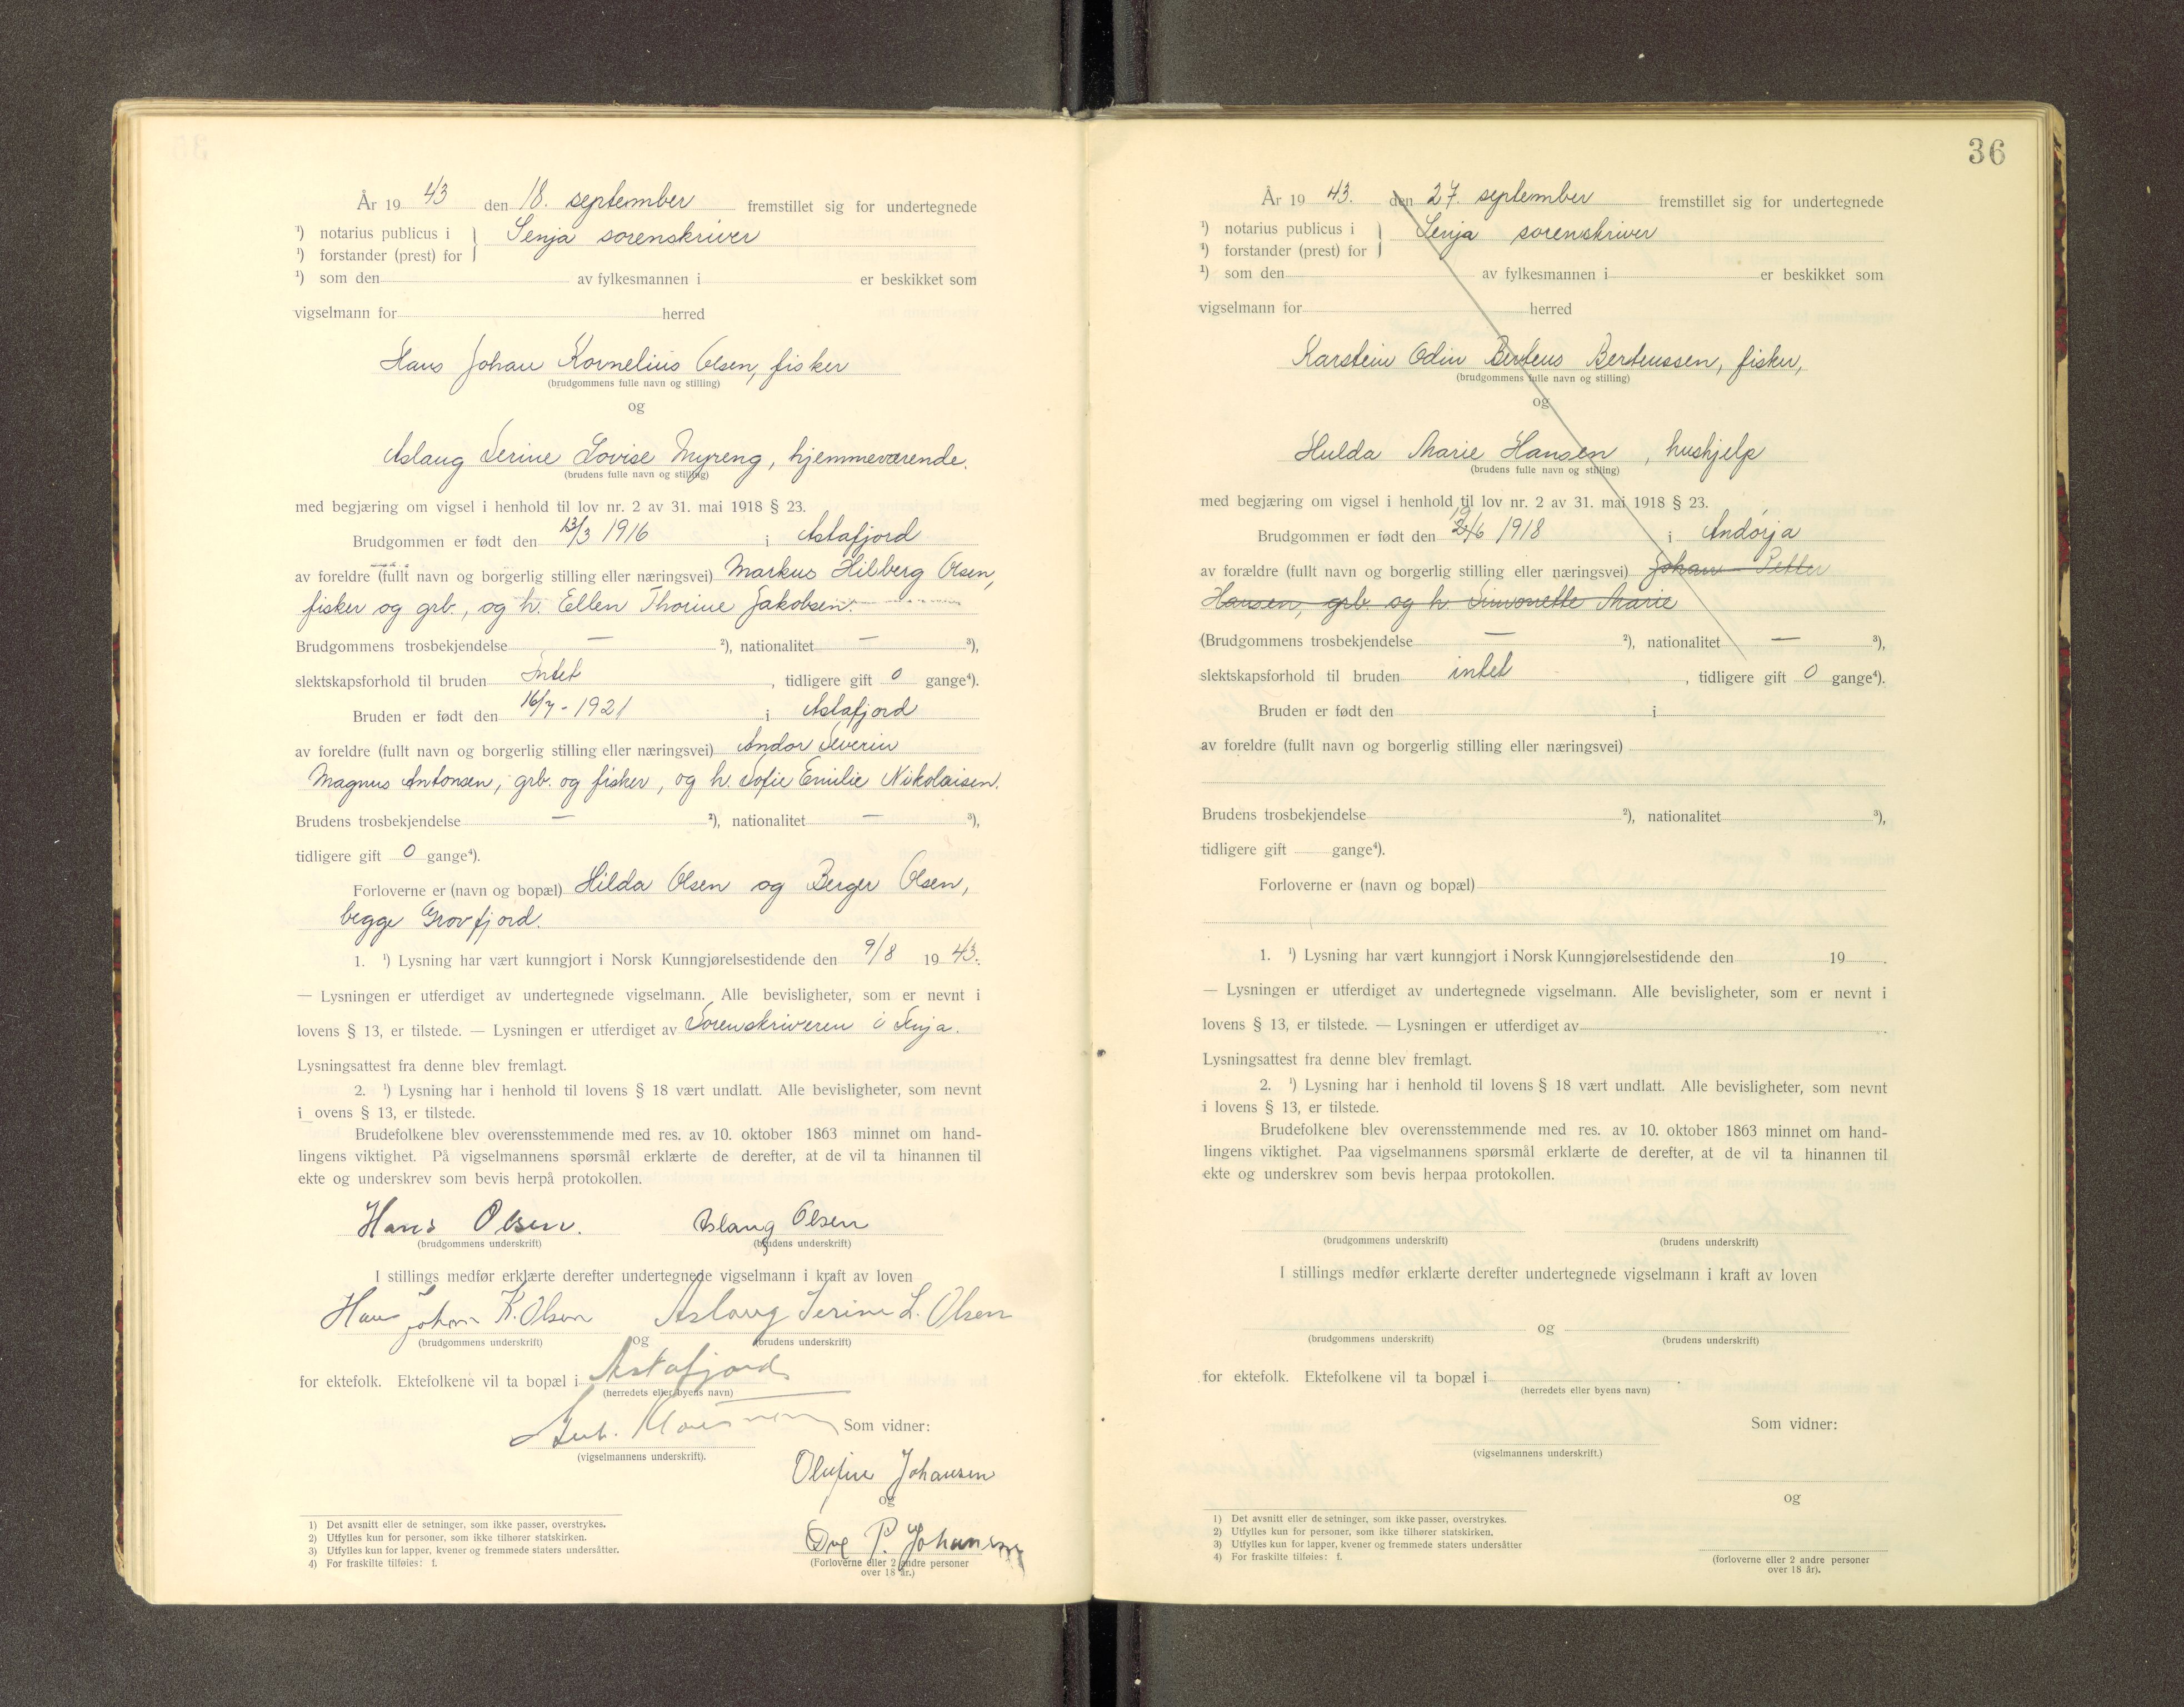 År 19 43 den 18. september fremstillet sig for undertegnede
¹) notarius publicus i } Senja sorenskriver
¹) forstander (prest) for
¹) som den av fylkesmannen i er beskikket som
vigselmann for herred
Hans Johan Kornelius Olsen, fisker
(brudgommens fulle navn og stilling)
og
Aslaug Serine Lovise Myreng, hjemmeværende.
(brudens fulle navn og stilling)
med begjæring om vigsel i henhold til lov nr. 2 av 31. mai 1918 § 23.
Brudgommen er født den 13/3 1916 i Astafjord
av foreldre (fullt navn og borgerlig stilling eller næringsvei) Markus Hilberg Olsen,
fisker og grb., og h. Ellen Thorine Jakobsen.
Brudgommens trosbekjendelse — ²), nationalitet — ³),
slektskapsforhold til bruden Intet, tidligere gift 0 gange⁴).
Bruden er født den 16/7 - 1921 i Astafjord
av foreldre (fullt navn og borgerlig stilling eller næringsvei) Andor Severin
Magnus Antonsen, grb. og fisker, og h. Sofie Emilie Nikolaisen.
Brudens trosbekjendelse — ²), nationalitet — ³),
tidligere gift 0 gange⁴).
Forloverne er (navn og bopæl) Hilda Olsen og Berger Olsen,
begge Grovfjord.
1. ¹) Lysning har vært kunngjort i Norsk Kunngjørelsestidende den 9/8 19 43.
— Lysningen er utferdiget av undertegnede vigselmann. Alle bevisligheter, som er nevnt i
lovens § 13, er tilstede. — Lysningen er utferdiget av Sorenskriveren i Senja.
Lysningsattest fra denne blev fremlagt.
2. ¹) Lysning har i henhold til lovens § 18 vært undlatt. Alle bevisligheter, som nevnt
i ovens § 13, er tilstede.
Brudefolkene blev overensstemmende med res. av 10. oktober 1863 minnet om hand-
lingens viktighet. På vigselmannens spørsmål erklærte de derefter, at de vil ta hinannen til
ekte og underskrev som bevis herpå protokollen.
Hans Olsen. Aslaug Olsen
(brudgommens underskrift) (brudens underskrift)
I stillings medfør erklærte derefter undertegnede vigselmann i kraft av loven
Hans Johan K. Olsen Aslaug Serine L. Olsen
(brudgommens underskrift) og (brudens underskrift)
for ektefolk. Ektefolkene vil ta bopæl i Astafjord
(herredets eller byens navn)
Som vidner:
(vigselmannens underskrift).
Olufine Johansen
og
P. Johansen
(Forloverne eller 2 andre personer
over 18 år.)
1) Det avsnitt eller de setninger, som ikke passer, overstrykes.
2) Utfylles kun for personer, som ikke tilhører statskirken.
3) Utfylles kun for lapper, kvener og fremmede staters undersåtter.
4) For fraskilte tilføies: f.
36
År 19 43. den 27. september fremstillet sig for undertegnede
¹) notarius publicus i } Senja sorenskriver
¹) forstander (prest) for
¹) som den av fylkesmannen i er beskikket som
vigselmann for herred
Karstein Odin Berteus Berteussen, fisker,
(brudgommens fulle navn og stilling)
og
Hulda Marie Hansen, hushjelp
(brudens fulle navn og stilling)
med begjæring om vigsel i henhold til lov nr. 2 av 31. mai 1918 § 23.
Brudgommen er født den 19/6 1918 i Andørja
av forældre (fullt navn og borgerlig stilling eller næringsvei) Johan Petter
Hansen, grb. og h. Simonette Marie
(Brudgommens trosbekjendelse — ²), nationalitet — ³),
slektskapsforhold til bruden intet, tidligere gift 0 gange⁴).
Bruden er født den i
av foreldre (fullt navn og borgerlig stilling eller næringsvei)
Brudens trosbekjendelse ²), nationalitet ³),
tidligere gift gange⁴).
Forloverne er (navn og bopæl)
1. ¹) Lysning har vært kunngjort i Norsk Kunngjørelsestidende den 19 .
— Lysningen er utferdiget av undertegnede vigselmann. Alle bevisligheter, som er nevnt i
lovens § 13, er tilstede. — Lysningen er utferdiget av
Lysningsattest fra denne blev fremlagt.
2. ¹) Lysning har i henhold til lovens § 18 vært undlatt. Alle bevisligheter, som nevnt
i lovens § 13, er tilstede.
Brudefolkene blev overensstemmende med res. av 10. oktober 1863 minnet om hand-
lingens viktighet. Paa vigselmannens spørsmål erklærte de derefter, at de vil ta hinannen til
ekte og underskrev som bevis herpaa protokollen.
(brudgommens underskrift) (brudens underskrift)
I stillings medfør erklærte derefter undertegnede vigselmann i kraft av loven
og
(brudgommens underskrift) (brudens underskrift)
for ektefolk. Ektefolkene vil ta bopæl i .
(herredets eller byens navn)
Som vidner:
(vigselmannens underskrift.)
og
(forloverne eller 2 andre personer
over 18 år).
1) Det avsnitt eller de setninger, som ikke passer, overstrykes.
2) Utfylles kun for personer, som ikke tilhører statskirken.
3) Utfylles kun for lapper, kvener og fremmede staters undersåtter
4) For fraskilte tilføies: f.